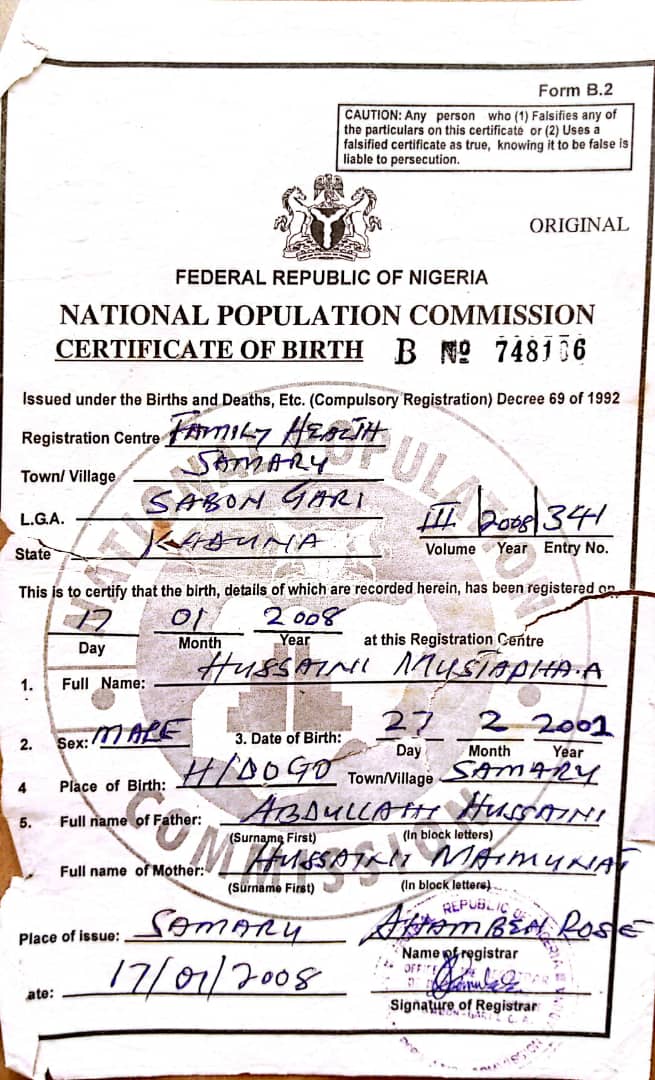 Form B.2
CAUTION: Any person who (1) Falsifies any of
the particulars on this certificate or (2) Uses a
falsified certificate as true, knowing it to be false is
liable to persecution.
ORIGINAL
FEDERAL REPUBLIC OF NIGERIA
NATIONAL POPULATION COMMISSION
CERTIFICATE OF BIRTH B No
Issued under the Births and Deaths, Etc. (Compulsory Registration) Decree 69 of 1992
Registration Centre FAMILY HEALTH
Town/ Village SAMARY
L.G.A. SABON GARI III 2008 341
State KADUNA Volume Year Entry No.
This is to certify that the birth, details of which are recorded herein, has been registered on
17 01 2008
Day Month Year at this Registration Centre
1. Full Name: HUSSAINI MUSTAPHA.A
2. Sex: MALE 3. Date of Birth: 27 2 2001
Day Month Year
4 Place of Birth: H/DOGO Town/Village SAMARY
5. Full name of Father: ABDULLAHI HUSSAINI
(Surname First) (In block letters)
Full name of Mother: HUSSAINI MAIMUNAT
(Surname First) (In block letters)
Place of issue: SAMARU ROSE
Name of registrar
ate: 17/01/2008
Signature of Registrar
NATIONAL POPULATION COMMISSION